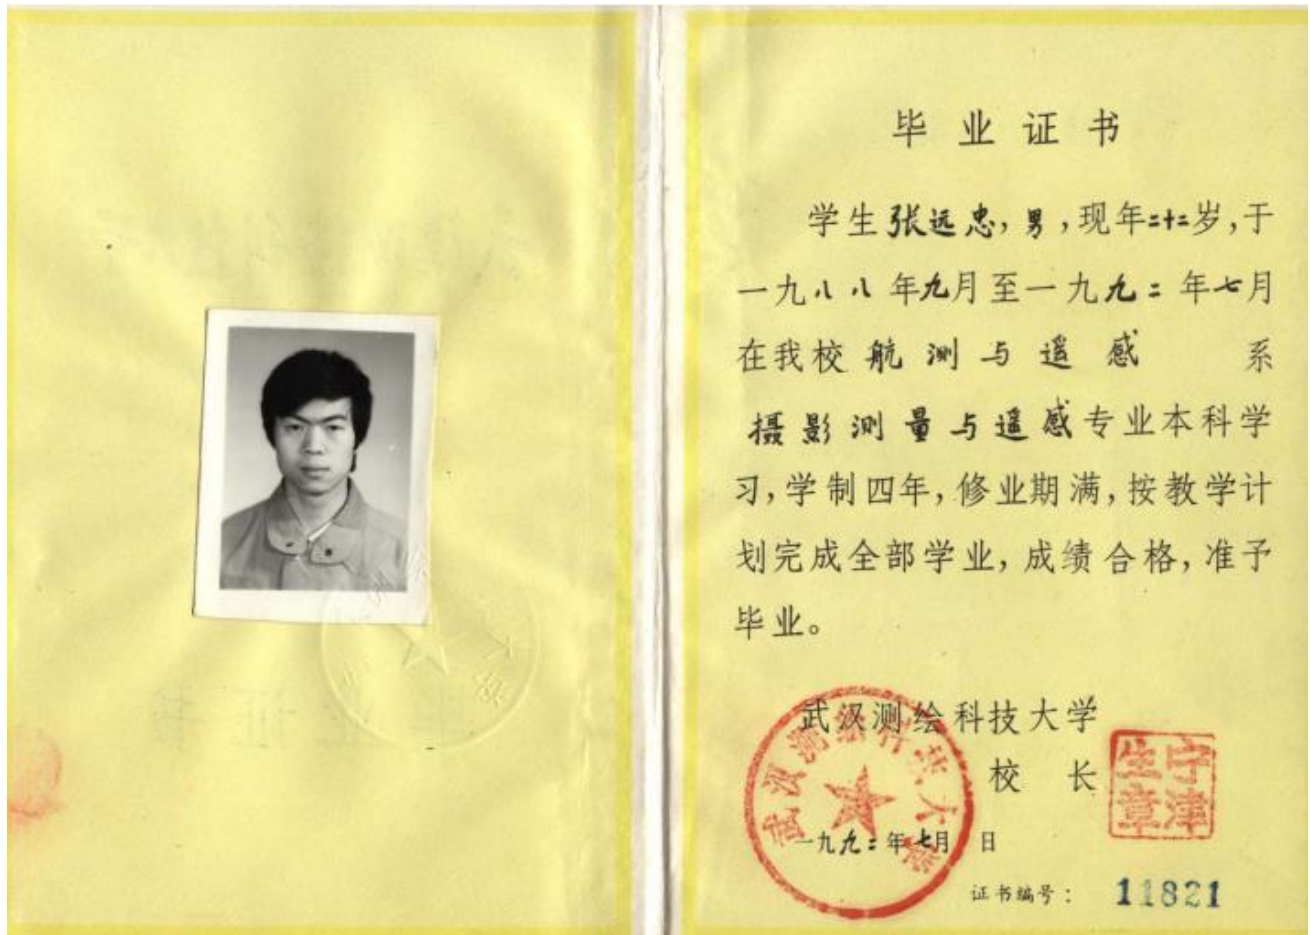 毕业证书
学生张远忠,男,现年二十二岁,于
一九八八年九月至一九九二年七月
在我校航测与遥感系
摄影测量与遥感专业本科学
习,学制四年,修业期满,按教学计
划完成全部学业,成绩合格,准予
毕业。
武汉测绘科技大学
校长
宁津生章
武汉测绘科技大学
一九九二年七月 日
证书编号: 11821